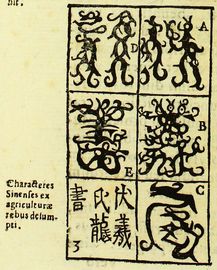 A
D
B
E
Characteres
Sinenses ex
agriculturæ
rebus desum-
pti.
C
伏羲
氏龍
書
3